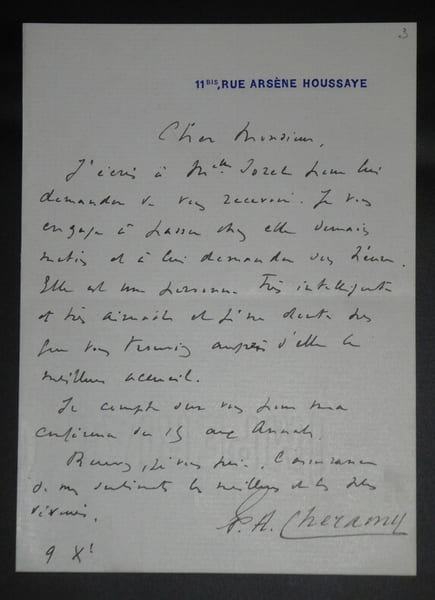 3
11BIS, RUE ARSÈNE HOUSSAYE
Cher Monsieur,
J'écris à Melle pour lui
demander de vous recevoir. Je vous
engage à passer chez elle demain
matin et à lui demander son heure.
Elle est une personne très intelligente
et très aimable et je ne doute pas
que vous trouviez auprès d'elle le
meilleur accueil.
Je compte sur vous pour ma
conférence du 15 aux Annales.
Recevez, je vous prie, l'assurance
de mes sentiments les meilleurs et les plus
dévoués.
P. A. Cheramy
9 Xe